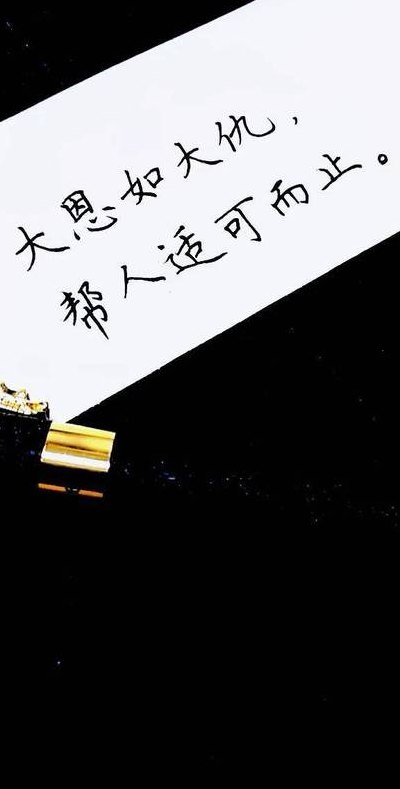 大恩如大仇，
帮人适可而止。